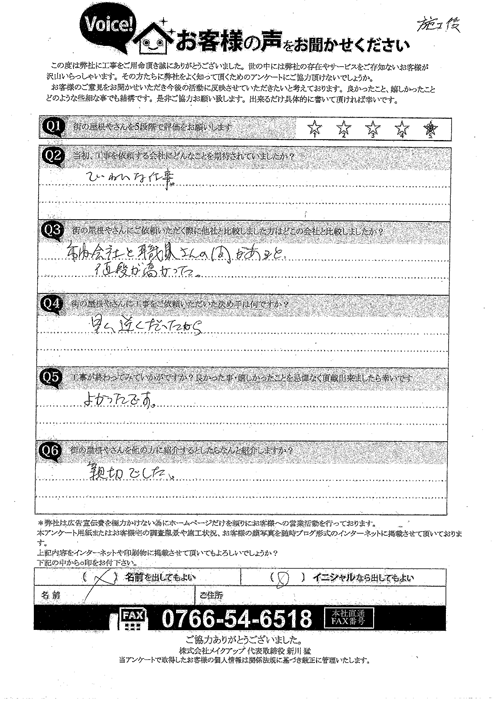 施工後
Voice!
お客様の声をお聞かせください
この度は弊社に工事をご用命頂き誠にありがとうございました。世の中には弊社の存在やサービスをご存知ないお客様が
沢山いらっしゃいます。その方たちに弊社をよく知って頂くためのアンケートにご協力頂けないでしょうか。
お客様のご意見をお聞かせいただき今後の活動に反映させていただきたいと考えております。良かったこと、嬉しかったこと
どのような些細な事でも結構です。是非ご協力お願い致します。出来るだけ具体的に書いて頂ければ幸いです。
Q1 街の屋根やさんを5段階で評価をお願いします
Q2 当初、工事を依頼する会社にどんなことを期待されていましたか?
ていねいな仕事
Q3 街の屋根やさんにご依頼いただく際に他社と比較しました方はどこの会社と比較しましたか?
会社と職員さんの間があると、
値段が高かった。
Q4 街の屋根やさんに工事をご依頼いただいた決め手は何ですか?
早く近くだったから
Q5 工事が終わってみていかがですか?良かった事・嬉しかったことを忌憚なく頂戴出来ましたら幸いです
よかったです。
Q6 街の屋根やさんを他の方に紹介するとしたらなんと紹介しますか?
親切でした。
*弊社は広告宣伝費を極力かけない為にホームページだけを頼りにお客様への営業活動を行っております。
本アンケート用紙またはお客様宅の調査風景や施工状況、お客様の顔写真を随時ブログ形式のインターネットに掲載させて頂いております。
上記内容をインターネットや印刷物に掲載させて頂いてもよろしいでしょうか?
下記の中から○印をお付下さい。
( )名前を出してもよい ( )イニシャルなら出してもよい
名前 ご住所
FAX 0766-54-6518 本社直通 FAX番号
ご協力ありがとうございました。
株式会社メイクアップ 代表取締役 新川 猛
当アンケートで取得したお客様の個人情報は関係法規に基づき厳正に管理いたします。